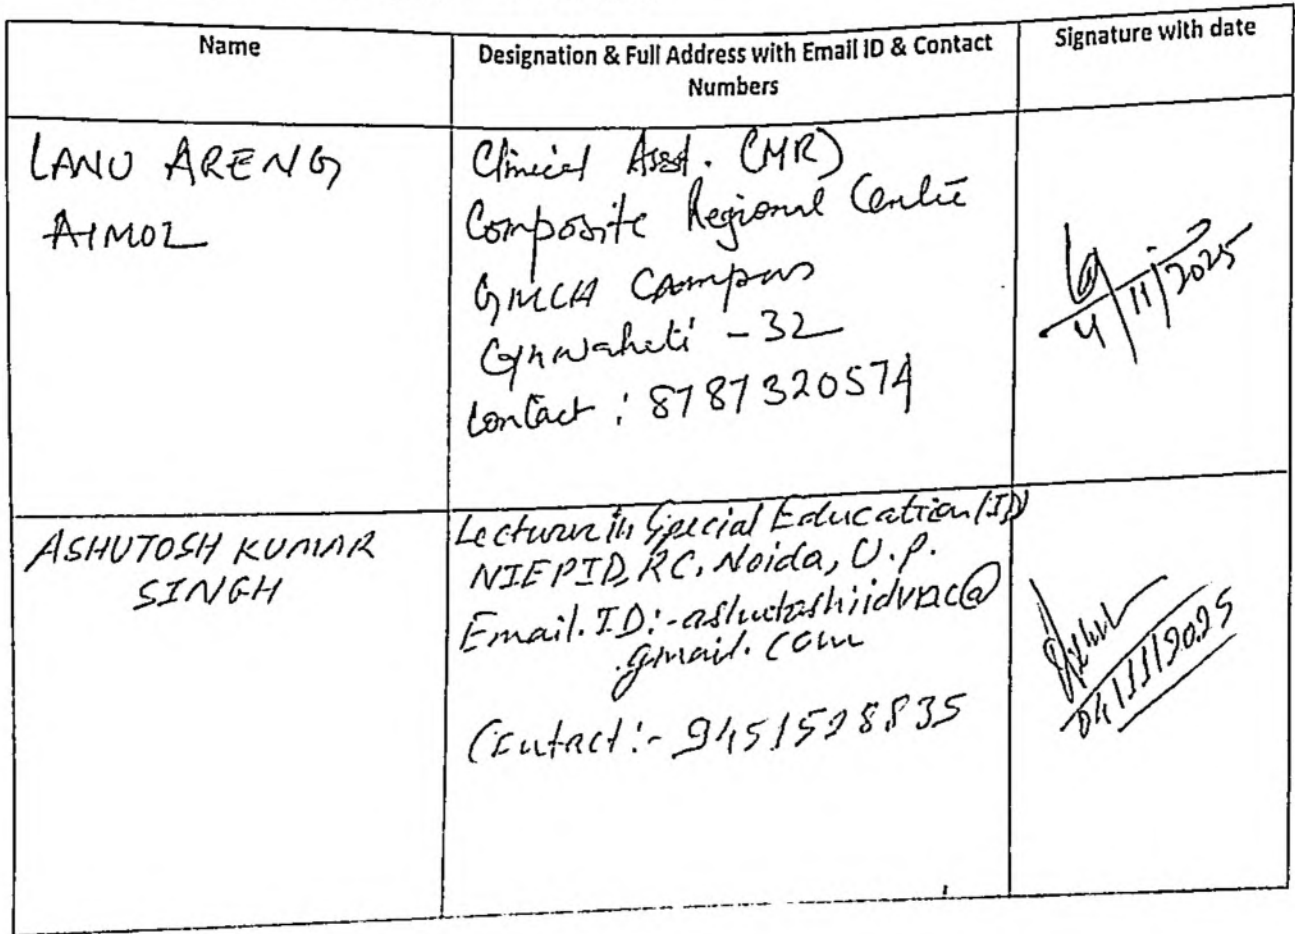 Name
Designation & Full Address with Email ID & Contact
Numbers
Signature with date
LANU ARENG
AIMOL
Clinical Asst. (MR)
Composite Regional Centre
GMCH Campus
Guwahati - 32
Contact : 8787320574
4/11/2025
ASHUTOSH KUMAR
SINGH
Lecturer in Special Education (ID)
NIEPID, RC, Noida, U.P.
Email. ID:-
gmail.com
Contact:- 9451528835
04/11/2025